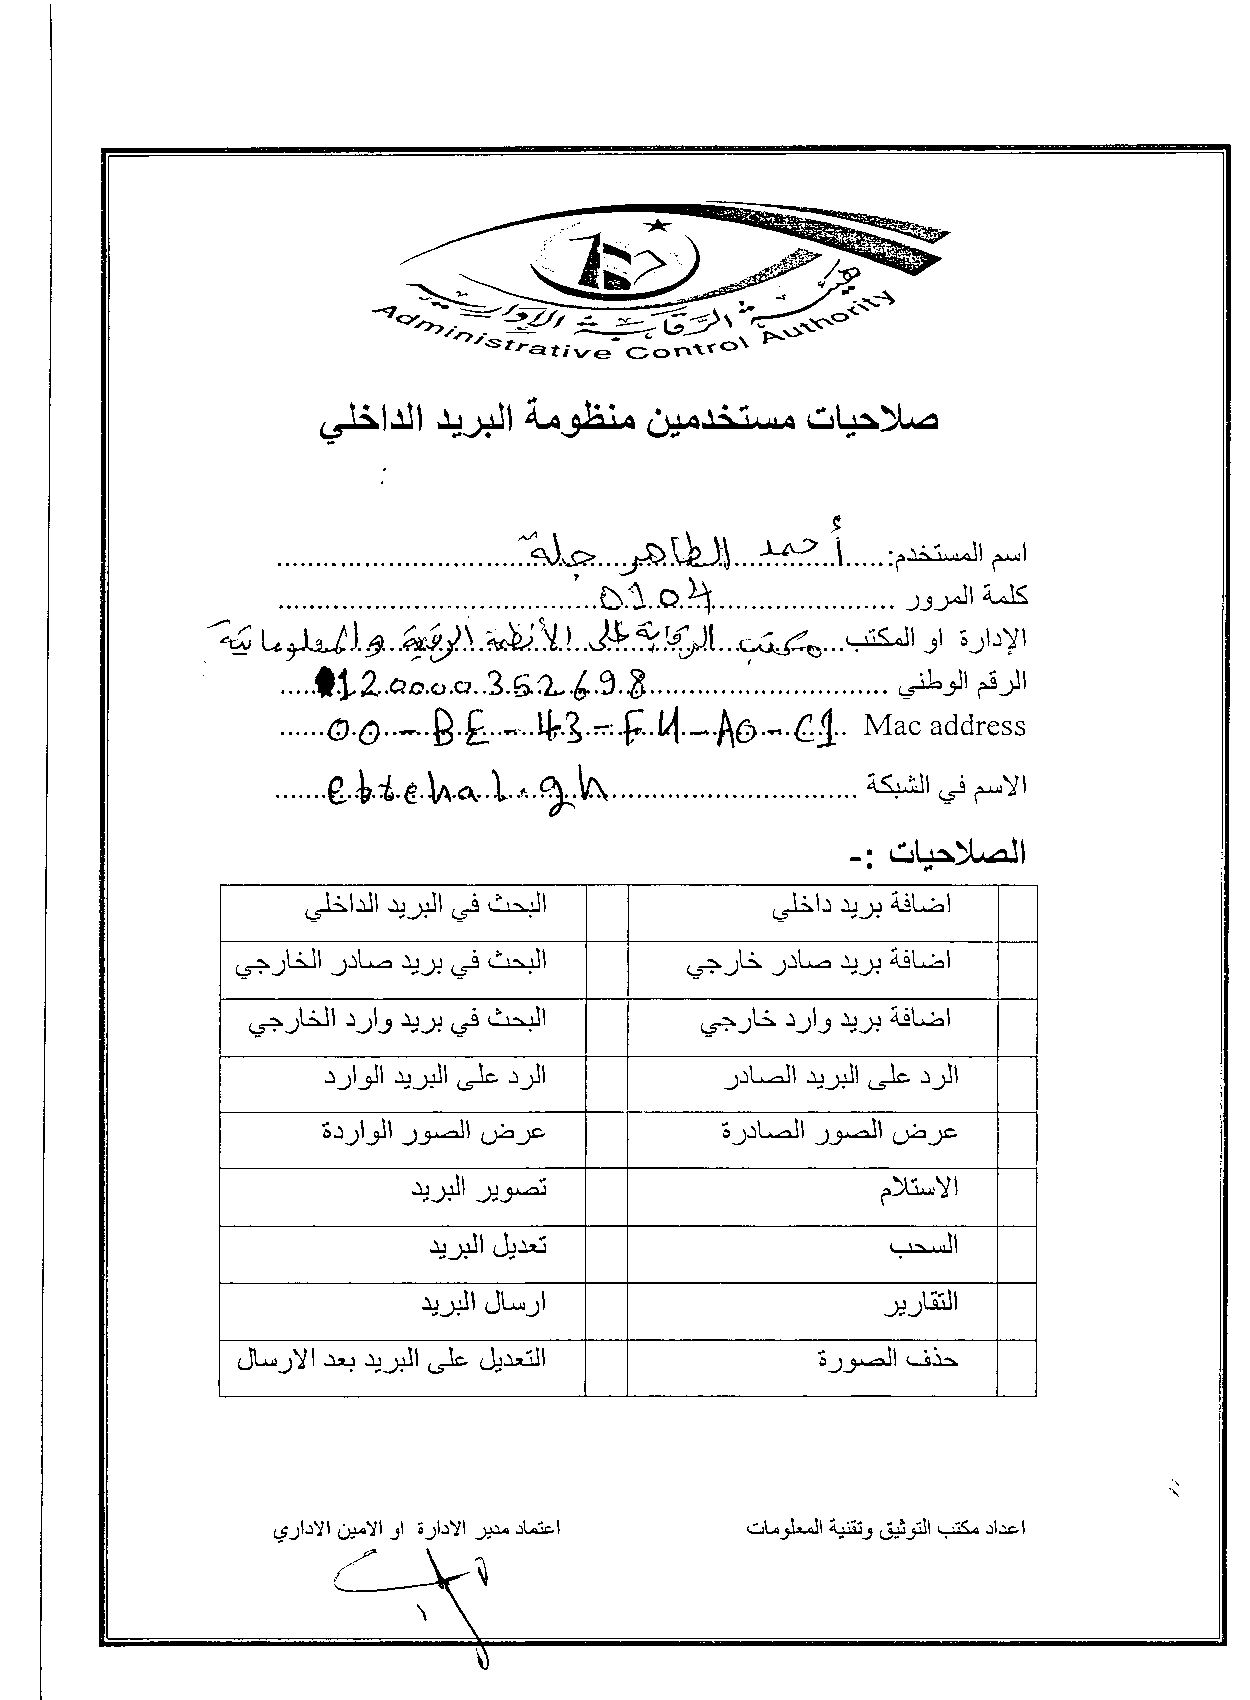 هيئة الرقابة الإدارية
Administrative Control Authority
صلاحيات مستخدمين منظومة البريد الداخلي
اسم المستخدم: أحمد الطاهر جلة
كلمة المرور 0104
الإدارة او المكتب مكتب الرقابة على الأنظمة الرقمية والمعلوماتية
الرقم الوطني 120000352698
00-BE-43-F4-A0-C1 Mac address
الاسم في الشبكة ebtehal.gh
الصلاحيات :-
اضافة بريد داخلي البحث في البريد الداخلي
اضافة بريد صادر خارجي البحث في بريد صادر الخارجي
اضافة بريد وارد خارجي البحث في بريد وارد الخارجي
الرد على البريد الصادر الرد على البريد الوارد
عرض الصور الصادرة عرض الصور الواردة
الاستلام تصوير البريد
السحب تعديل البريد
التقارير ارسال البريد
حذف الصورة التعديل على البريد بعد الارسال
اعداد مكتب التوثيق وتقنية المعلومات اعتماد مدير الادارة او الامين الاداري